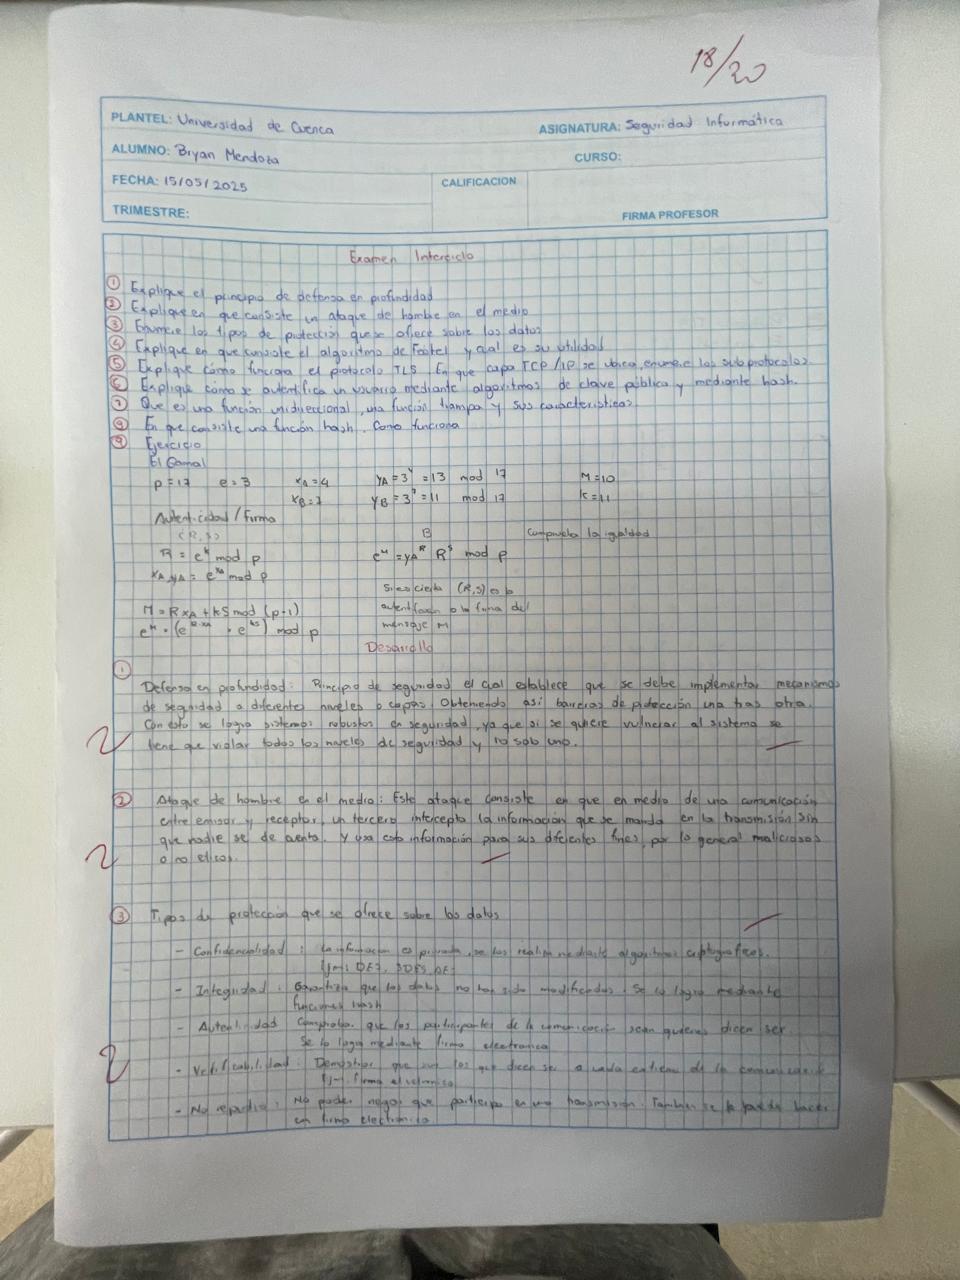 18/20
PLANTEL: Universidad de Cuenca
ASIGNATURA: Seguridad Informática
ALUMNO: Bryan Mendoza
CURSO:
FECHA: 15/05/2025
CALIFICACION
TRIMESTRE:
FIRMA PROFESOR
Examen Interciclo
① Explique el principio de defensa en profundidad
② Explique en que consiste un ataque de hombre en el medio
③ Enumere los tipos de protección que se ofrece sobre los datos
④ Explique en que consiste el algoritmo de Feistel y cual es su utilidad
⑤ Explique cómo funciona el protocolo TLS. En que capa TCP/IP se ubica, enumere los subprotocolos.
⑥ Explique cómo se autentifica un usuario mediante algoritmos de clave pública y mediante hash.
⑦ Que es una función unidireccional, una función trampa y sus características
⑧ En que consiste una función hash. Como funciona
⑨ Ejercicio
El Gamal
p = 17 e = 3 xA = 4 yA = 3⁴ = 13 mod 17 M = 10
xB = 7 yB = 3⁷ = 11 mod 17 k = 11
Autenticidad / firma
(R, S) B Comprueba la igualdad
R = eᵏ mod p eᴹ = yAᴿ Rˢ mod p
xA, yA = eˣᴬ mod p
Si es cierto (R,S) es la
M = R xA + kS mod (p-1) o la firma del
eᴹ = (eᴿ·ˣᴬ · eᵏˢ) mod p mensaje M
Desarrollo
①
Defensa en profundidad: Principio de seguridad el cual establece que se debe implementar mecanismos
de seguridad a diferentes niveles o capas. Obteniendo así barreras de protección una tras otra.
Con esto se logra sistemas robustos en seguridad, ya que si se quiere vulnerar al sistema se
2 tiene que violar todos los niveles de seguridad y no solo uno.
② Ataque de hombre en el medio: Este ataque consiste en que en medio de una comunicación
entre emisor y receptor, un tercero intercepta la información que se manda en la transmisión sin
que nadie se de cuenta. Y usa esta información para sus diferentes fines, por lo general maliciosos
2 o no eticos.
③ Tipos de protección que se ofrece sobre los datos
- Confidencialidad: La información es privada, se los realiza mediante algoritmos criptograficos.
DES, 3DES,
- Integridad: Garantiza que los datos no han sido modificados. Se lo logra mediante
funciones hash
- Autenticidad Comprobar que los participantes de la comunicación sean quienes dicen ser.
Se lo logra mediante firma electronica
2 - Demostrar que son los que dicen ser a cada de la comunicación
firma electronica
- No repudio: No poder negar que participa en una transmisión. Tambien se lo puede hacer
con firma electronica.